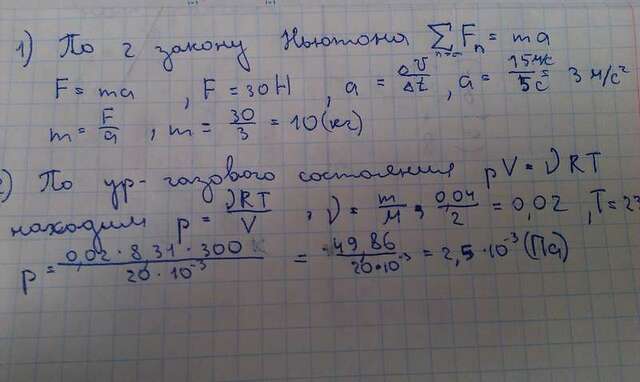 1) По 2 закону Ньютона ∑Fₙ = ma
F = ma , F = 30 Н , a = ΔV/Δt , a = 15 м/с / 5 с = 3 м/с²
m = F/a , m = 30/3 = 10 (кг)
2) По ур- газового состояния pV = νRT
находим p = νRT/V , ν = m/M = 0,04/2 = 0,02 , T = 27
p = 0,02 · 8,31 · 300 К / 20 · 10⁻³ = 49,86 / 20 · 10⁻³ = 2,5 · 10⁻³ (Па)